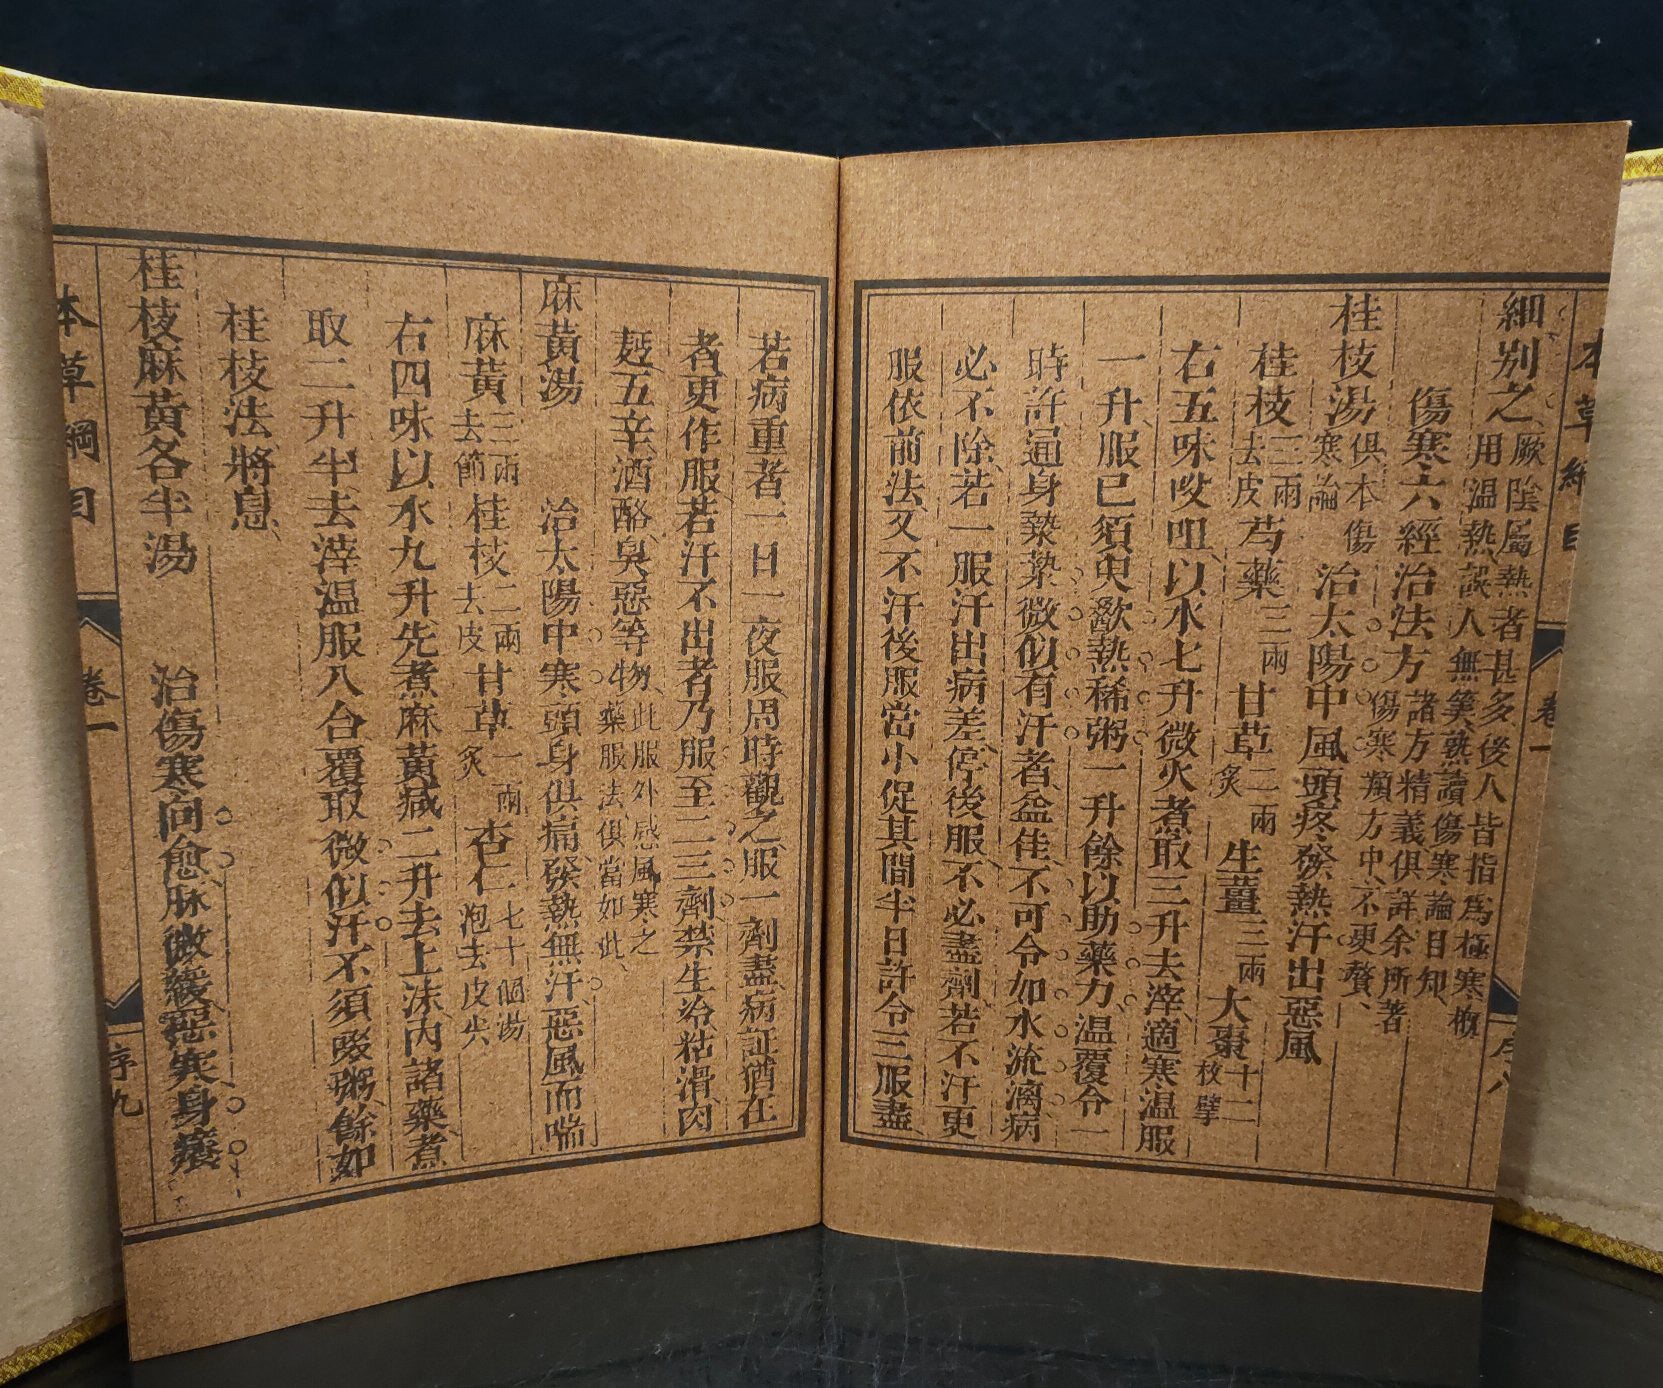 本草綱目
卷一
序八
細別之厥陰屬熱者甚多後人皆指爲極寒概
用温熱誤人無筭熟讀傷寒論自知
傷寒六經治法方諸方精義俱詳余所著
傷寒類方中不更贅
桂枝湯俱本傷
寒論治太陽中風頭疼發熱汗出惡風
桂枝三兩
去皮芍藥三兩甘草二兩
炙生薑三兩大棗十二
枚擘
右五味㕮咀以水七升微火煮取三升去滓適寒温服
一升服已須臾歠熱稀粥一升餘以助藥力温覆令一
時許遍身漐漐微似有汗者益佳不可令如水流漓病
必不除若一服汗出病差停後服不必盡劑若不汗更
服依前法又不汗後服當小促其間半日許令三服盡
若病重者一日一夜服周時觀之服一劑盡病証猶在
者更作服若汗不出者乃服至二三劑禁生冷粘滑肉
麪五辛酒酪臭惡等物此服外感風寒之
藥服法俱當如此
麻黄湯治太陽中寒頭身俱痛發熱無汗惡風而喘
麻黄三兩
去節桂枝二兩
去皮甘草一兩
炙杏仁七十個湯
泡去皮尖
右四味以水九升先煮麻黄減二升去上沫内諸藥煮
取二升半去滓温服八合覆取微似汗不須啜粥餘如
桂枝法將息
桂枝麻黄各半湯治傷寒向愈脉微緩惡寒身癢
本草綱目
卷一
序九